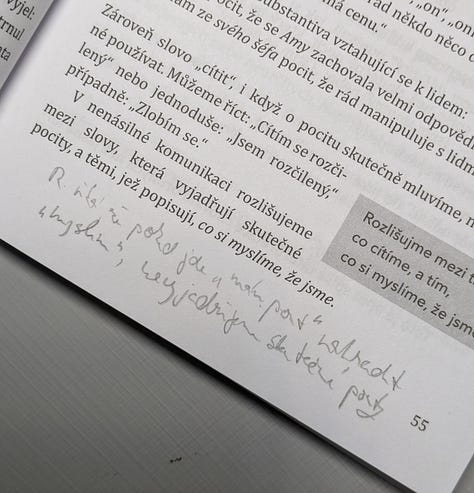 „on“, „oni
rád někdo něco d
substantiva vztahující se k lidem:
má cenu.“
pocit, že se Amy zachovala velmi odpovědn
ám ze svého šéfa pocit, že rád manipuluje s lidm
vyjel:
trnul
ata
Zároveň slovo „cítit“, i když o pocitu skutečně mluvíme, n
né používat. Můžeme říct: „Cítím se rozčí-
lený“ nebo jednoduše: „Jsem rozčílený,“
případně: „Zlobím se.“
V nenásilné komunikaci rozlišujeme
mezi slovy, která vyjadřují skutečné
pocity, a těmi, jež popisují, co si myslíme, že jsme.
Rozlišujme mezi t
co cítíme, a tím,
co si myslíme, že jsme
R. říká že pokud jde „mám pocit“ nahradit
„myslím“, nevyjadřujeme skutečné pocity
55